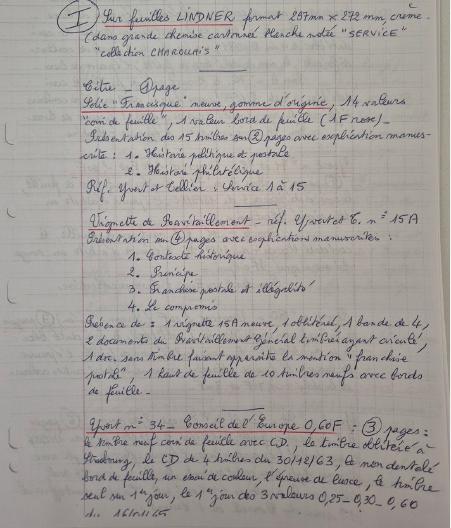 I Sur feuilles LINDNER format 297mm x 272 mm, crème.
(dans grande chemise cartonnée blanche notée "SERVICE"
"collection CHAROLAIS"
Titre - 1 page
Série "Francisque" neuve, gomme d'origine, 14 valeurs
"coin de feuille", 1 valeur bord de feuille (1F rose) -
Présentation des 15 timbres sur 2 pages avec explication manus-
crite : 1. Histoire politique et postale
2. Histoire philatélique
Réf: Yvert et Tellier : Service 1 à 15
Vignette de Ravitaillement - réf. Yvert et T. n° 15A
Présentation sur 4 pages avec explications manuscrites :
1. Contexte historique
2. Principe
3. Franchise postale et illégalité
4. Le compromis
Présence de : 1 vignette 15A neuve, 1 oblitérée, 1 bande de 4,
2 documents du Ravitaillement Général timbrés ayant circulé,
1 doc. sans timbre faisant apparaître la mention "franchise
postale", 1 haut de feuille de 10 timbres neufs avec bords
de feuille -
Yvert n° 34 - Conseil de l'Europe 0,60F : 3 pages :
le timbre neuf coin de feuille avec CD, le timbre oblitéré à
Strasbourg, le CD de 4 timbres du 30/12/63, le non dentelé
bord de feuille, un essai de couleur, l'épreuve de luxe, le timbre
seul sur 1er jour, le 1er jour des 3 valeurs 0,25 - 0,30 - 0,60
16/01/65